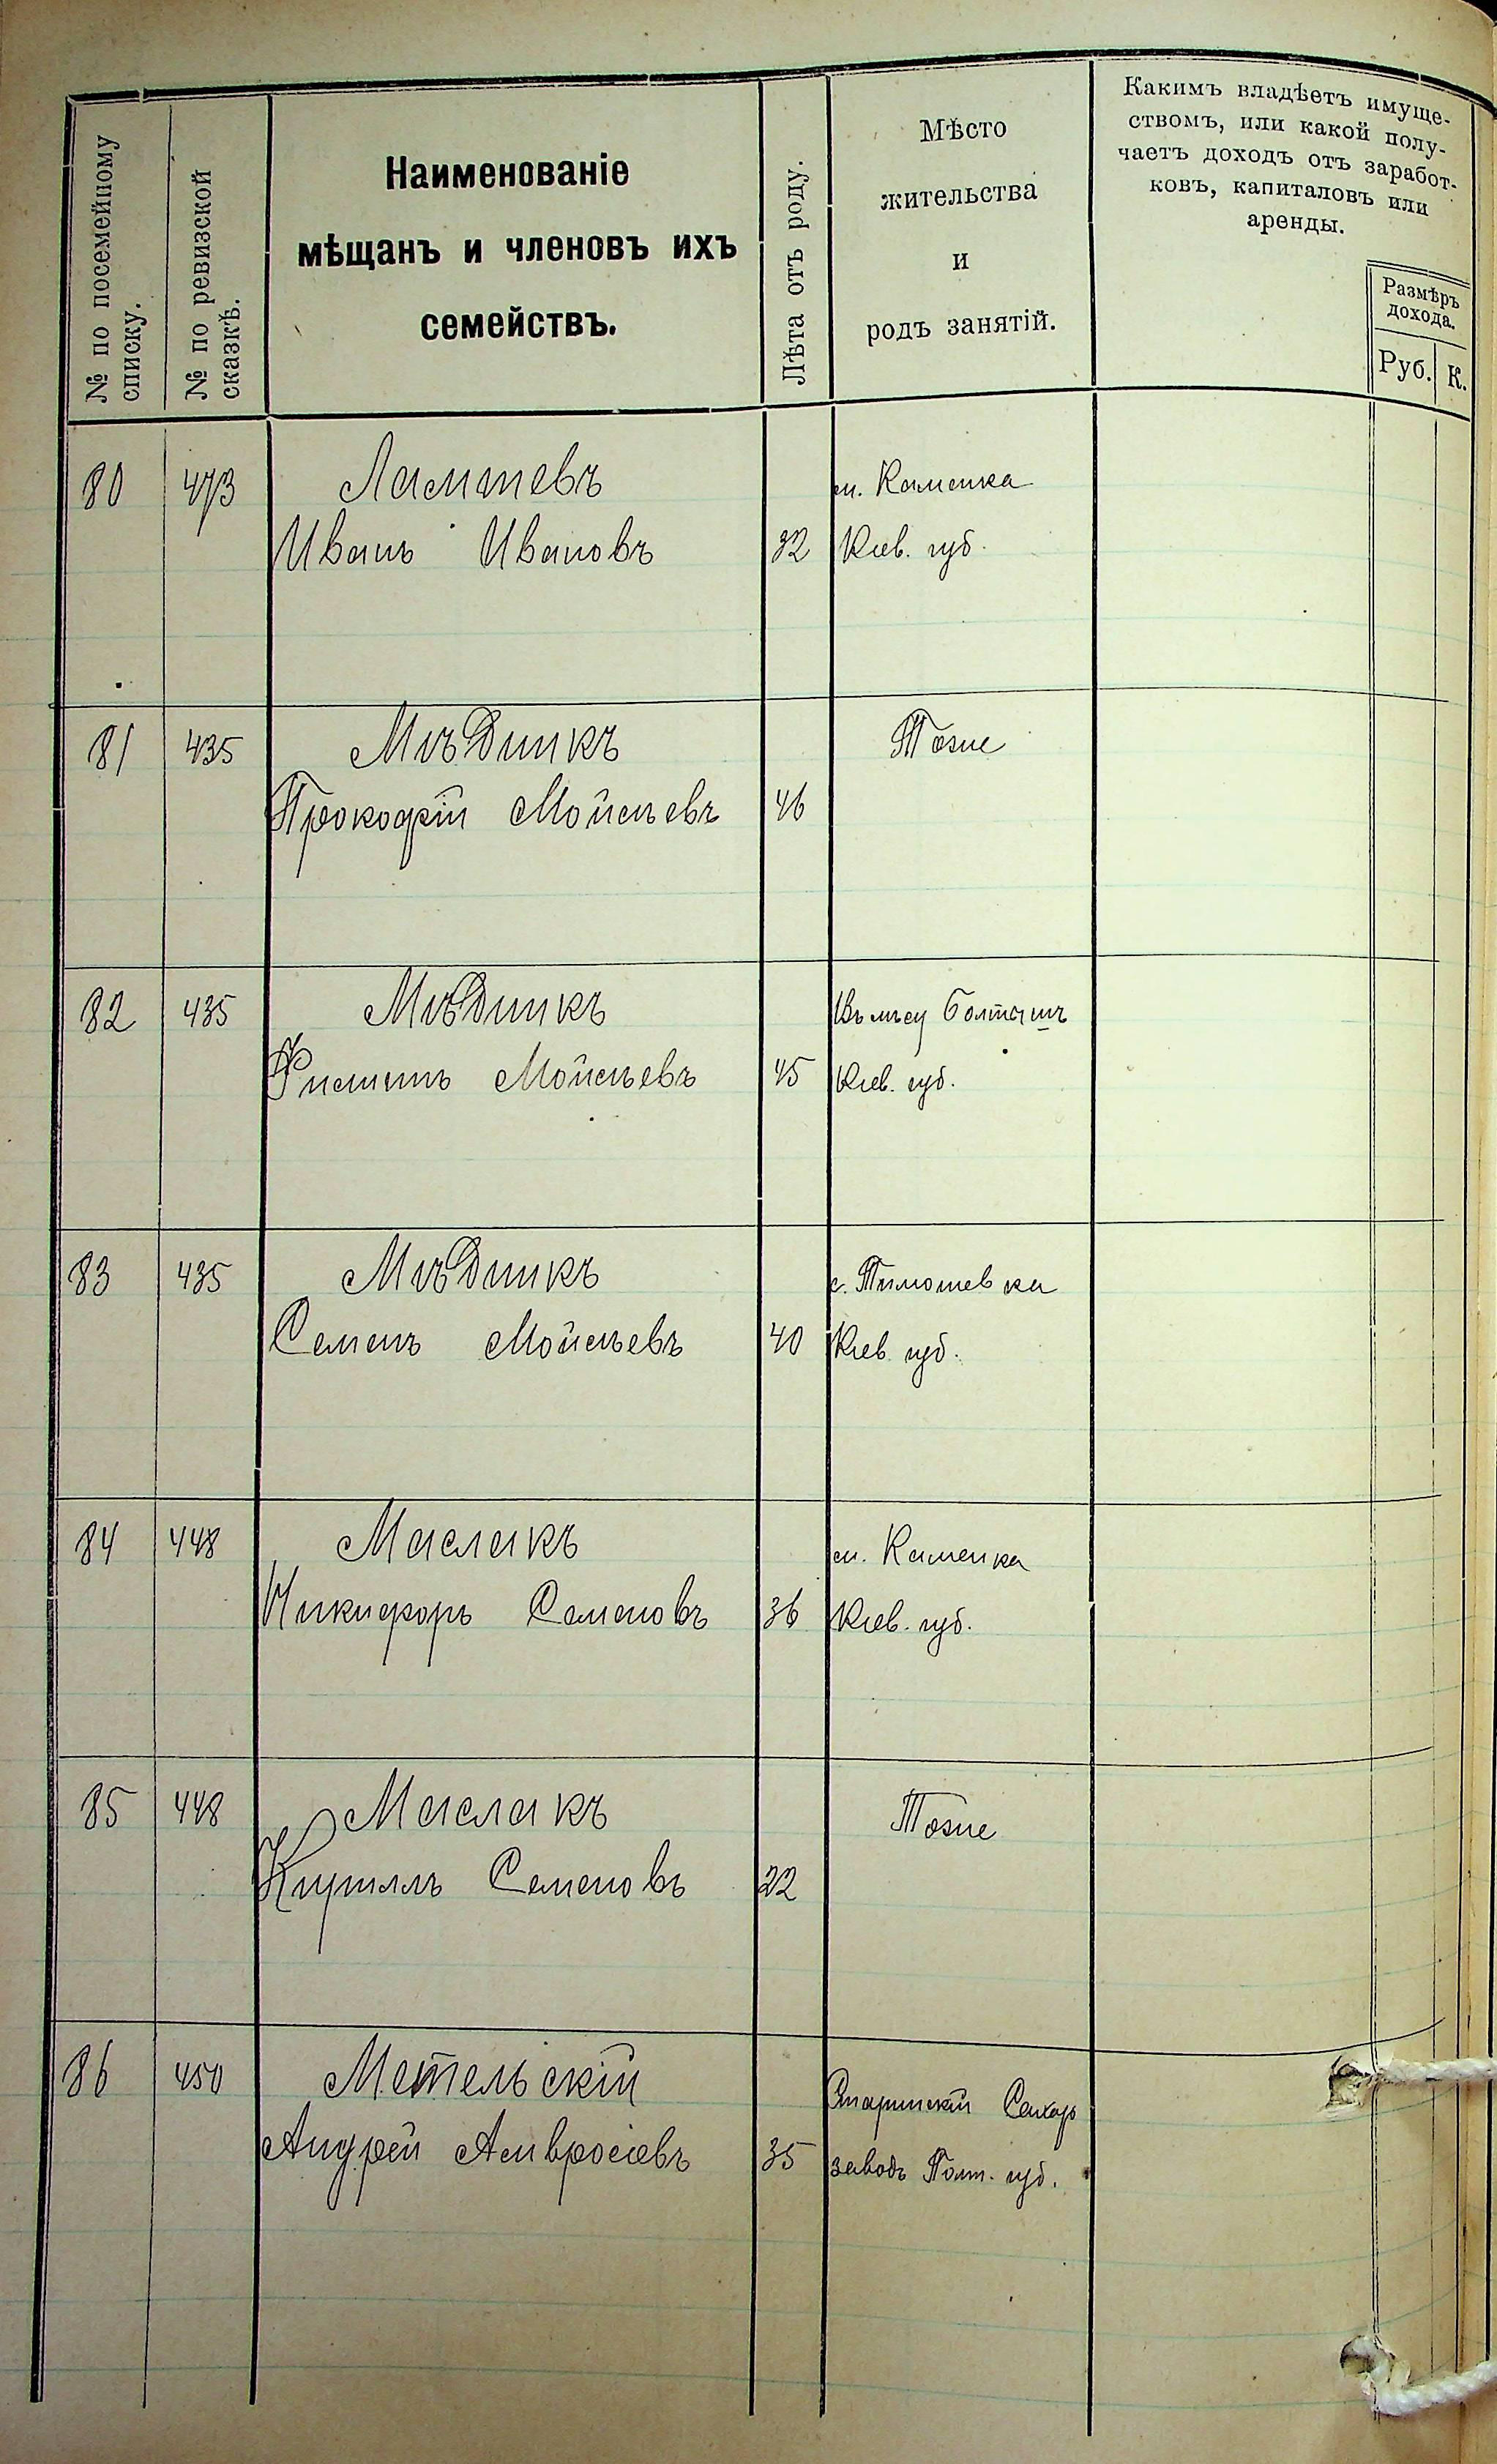 № по посемейному
списку.
№ по ревизской
сказкѣ.
Наименованіе
мѣщанъ и членовъ ихъ
семействъ.
Лѣта отъ роду.
Мѣсто
жительства
и
родъ занятій.
Какимъ владѣетъ имуще-
ствомъ, или какой полу-
чаетъ доходъ отъ заработ-
ковъ, капиталовъ или
аренды.
Размѣръ
дохода.
Руб. К.
80 473 Лаптевъ м. Каменка
Иванъ Ивановъ 32 Кіев. губ.
81 435 Мѣдникъ Тоже
Прокофій Мойсѣевъ 46
82 435 Мѣдникъ Болтышъ
Филиппъ Мойсѣевъ 45 Кіев. губ.
83 435 Мѣдникъ с. Тимошевка
Семенъ Мойсѣевъ 40 Кіев. губ.
84 448 Маслакъ м. Каменка
Никифоръ Семеновъ 36 Кіев. губ.
85 448 Маслакъ Тоже
Кириллъ Семеновъ 22
86 450 Метельскій Сахар
Андрей Амвросіевъ 35 заводъ Полт. губ.